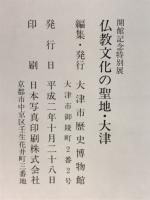 開館記念特別展
仏教文化の聖地・大津
編集・発行 大津市歴史博物館
大津市御陵町2番2号
発行日 平成二年十月二十八日
印刷 日本写真印刷株式会社
京都市中京区壬生花井町三番地